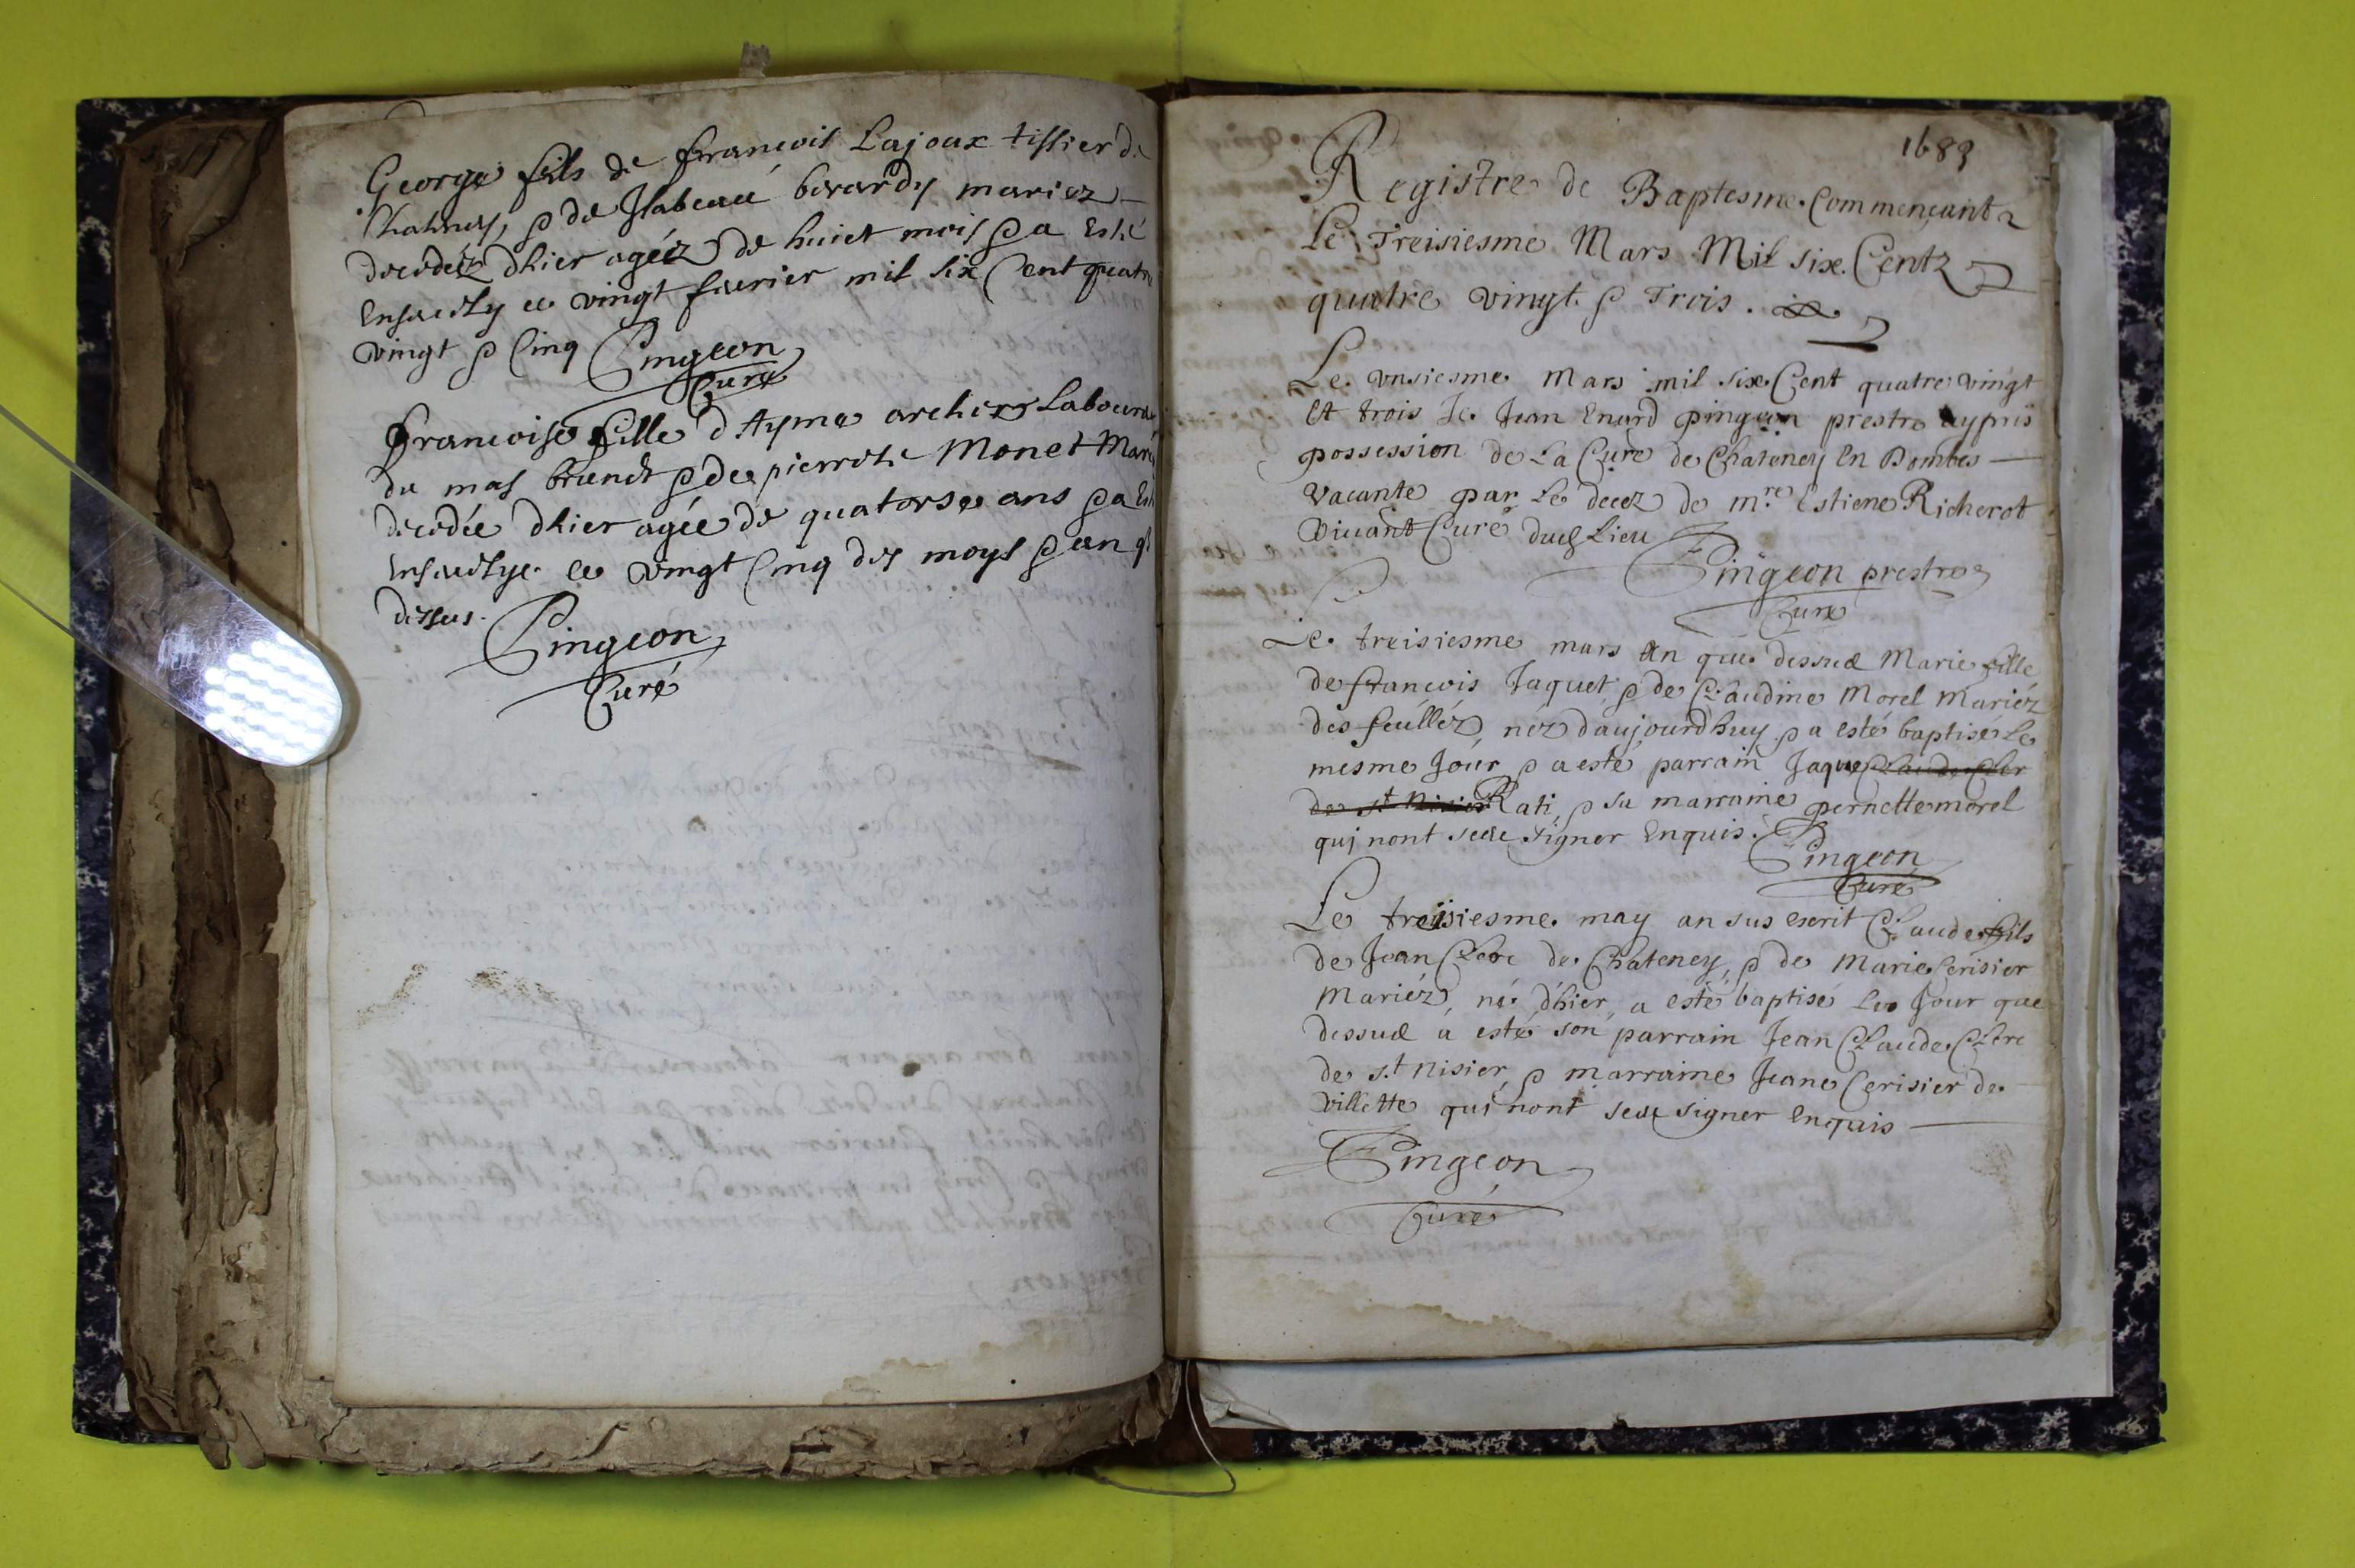 George fils de francois Lajoux tissier de
Chatenay, & de Isabeau berardy mariez
decedez dhier agéez de huict mois & a Esté
Ensevely ce vingt fevrier mil six Cent quatre
vingt & Cinq Pingeon
Curé
francoise fille d Ayme archier Laboureur
du mas & de pierrette Monet Mari
decedée dhier agée de quatorse ans & a Est
Ensevelye ce vingt Cinq des moys & an q
dessus. Pingeon
Curé
1683
Registre de Baptesme Commençant
Le Treisiesme Mars Mil six Centz
quatre vingt & Trois.
Le unsiesme mars mil six Cent quatre vingt
Et trois Je Jean Enard pingeon prestre ay pris
possession de La Cure de Chateney En Dombes
vacante par Le decez de mre Estiene Richerot
vivant Curé dud Lieu
Pingeon prestre
Curé
Le treisiesme mars An que dessus Marie fille
de francois Jaquet & de Claudine Morel Mariéz
des feulléz, néz d'aujourdhuy & a esté baptisé Le
mesme Jour & a esté parrain Jaque Claude Cler
de st Nisier Rati & sa marraine pernette morel
qui nont seue signer Enquis. Pingeon
Curé
Le treisiesme may an sus escrit Claude fils
de Jean Clere de Chateney & de Marie Cerisier
Mariéz, né dhier, a esté baptisé Le Jour que
dessus a esté son parrain Jean Claude Clere
de st Nisier & marraine Jeane Cerisier de
villette qui nont seue signer Enquis
Pingeon
Curé